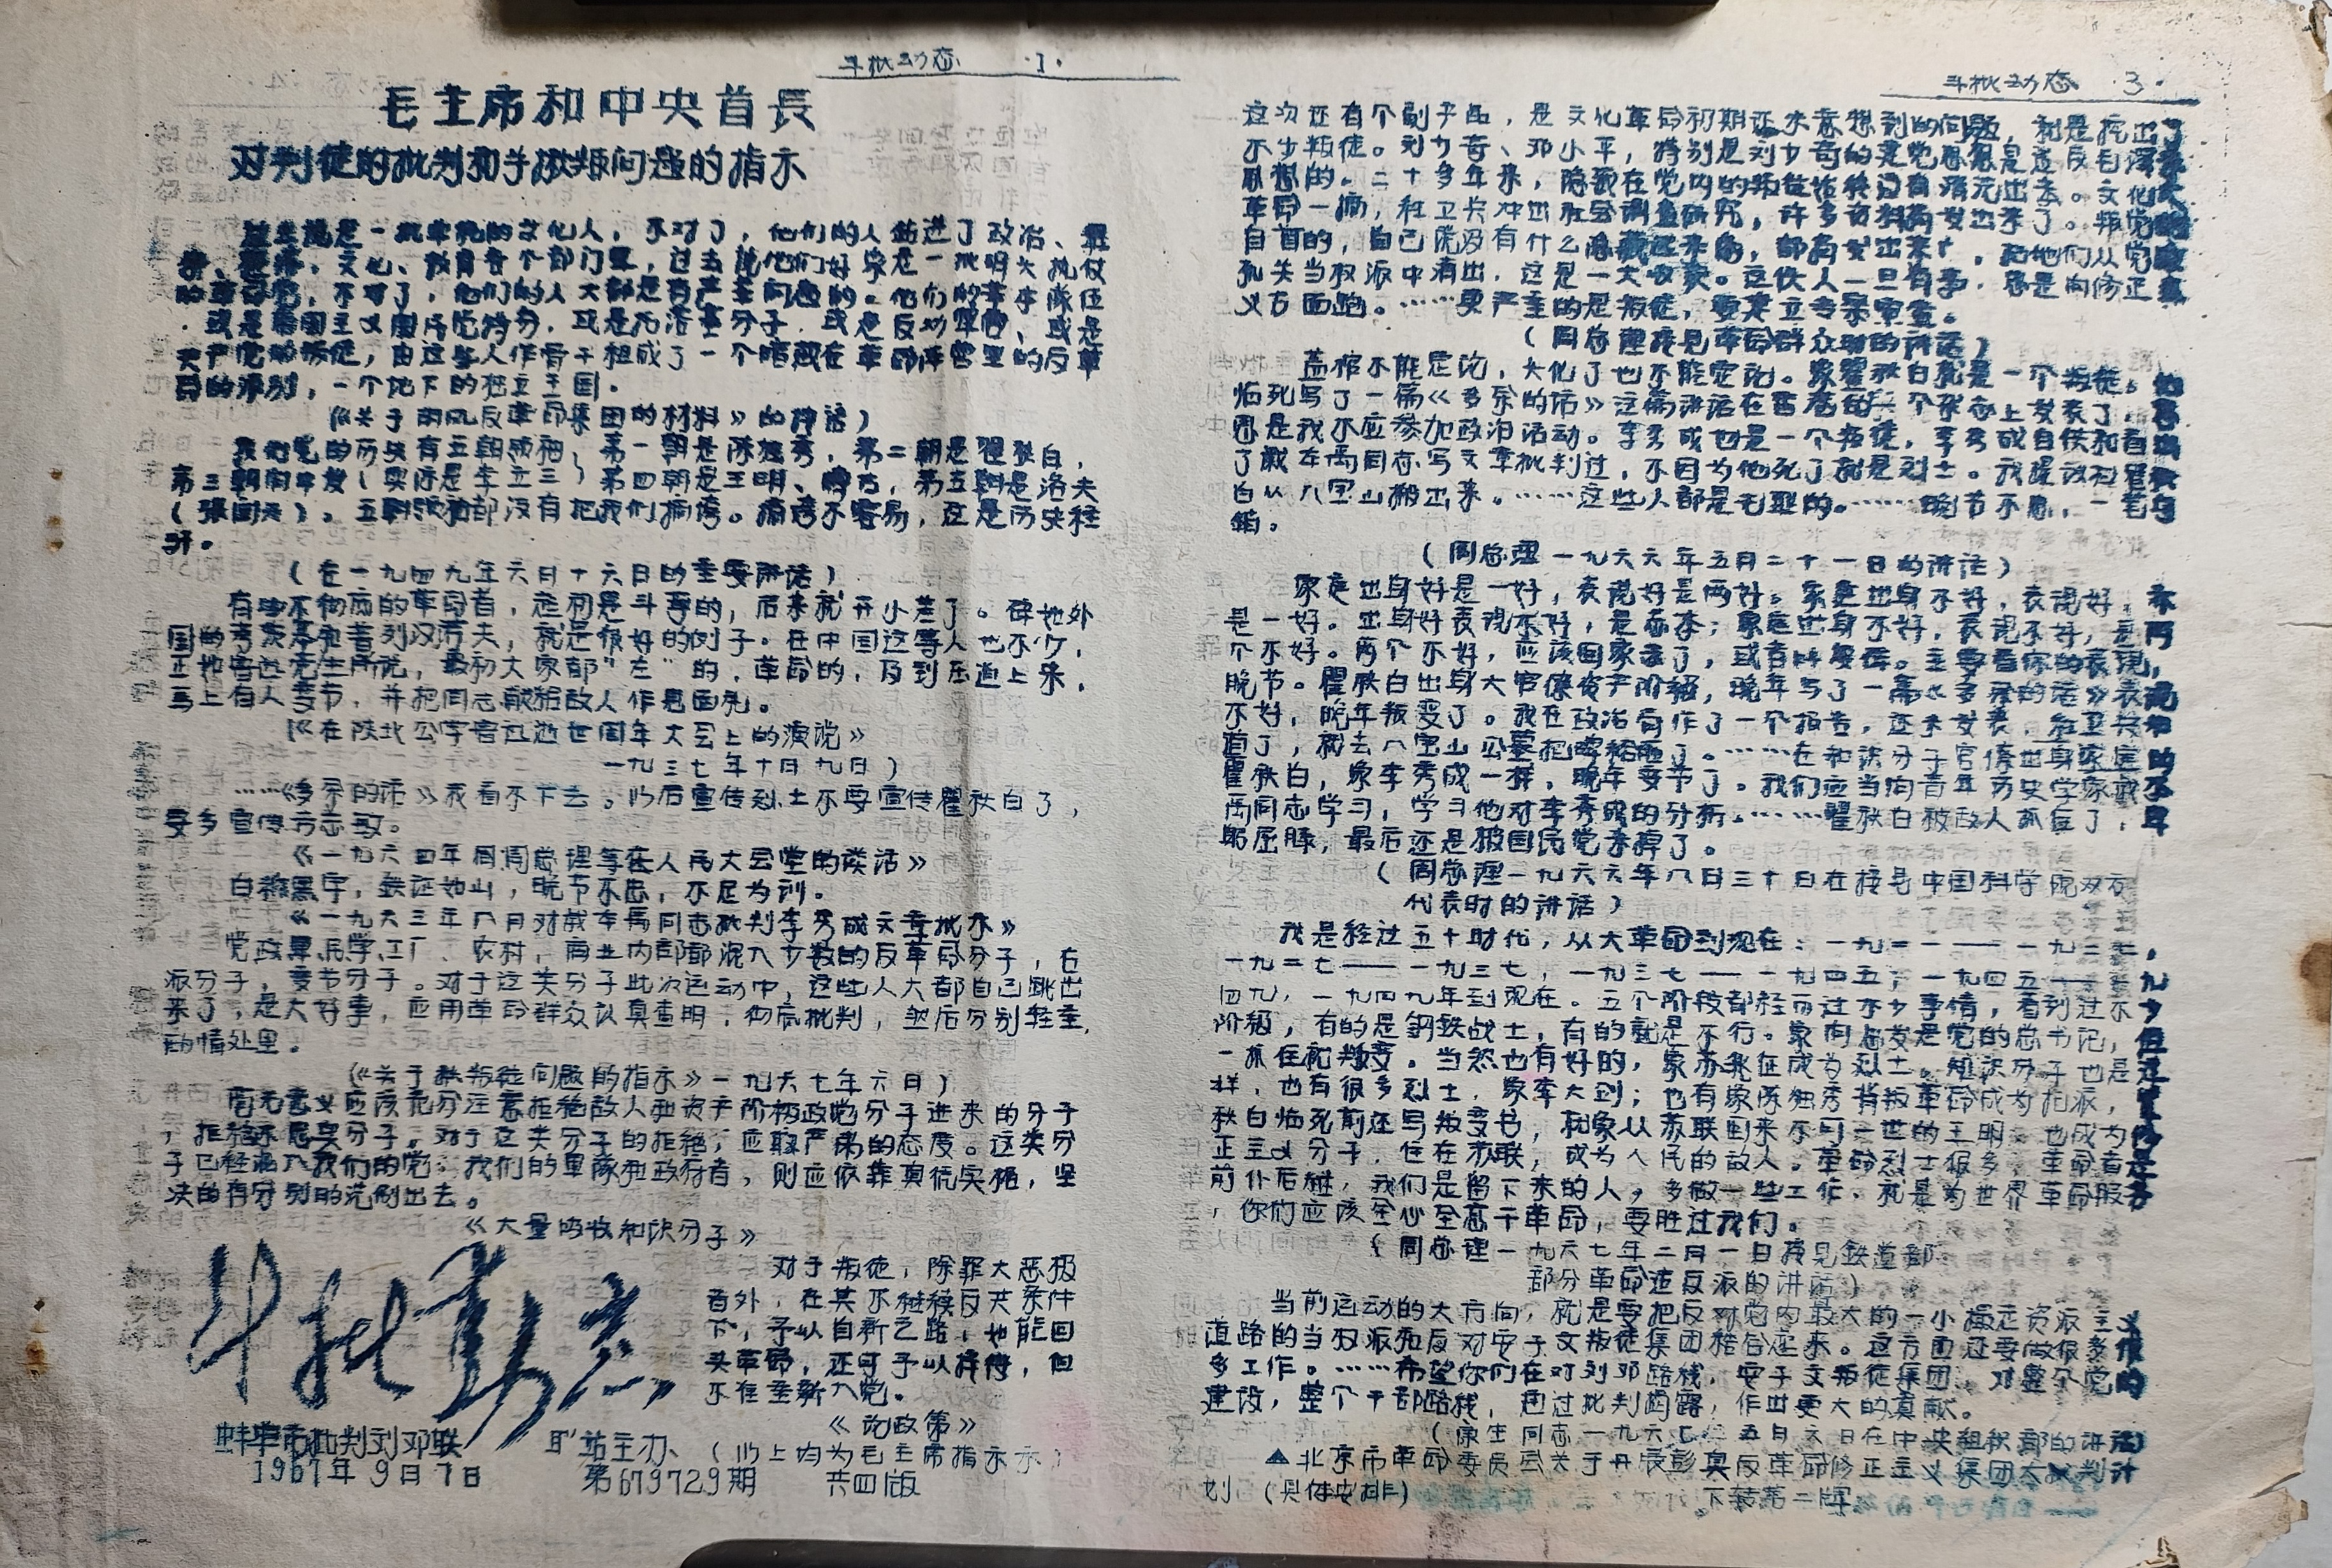 斗批动态 ·1·
毛主席和中央首長
对判徒的批判和关揪叛问题的指示
过去说是一批单纯的文化人，不对了，他们的人钻进了政治、軍
事、经济、文化、教育各个部门里，过去说他们好象是一批明火执仗
的革命党，不对了，他们的人大都是有严重问题的。他们的基本队伍
，或是帝国主义国民党特务，或是托洛茨基分子，或是反动军官、或是
共产党的叛徒，由这些人作骨干组成了一个暗藏在革命阵营里的反革
命的派别，一个地下的独立王国。
《关于胡风反革命集团的材料》的按语）
我们党的历史有五朝领袖，第一朝是陈独秀，第二朝是瞿秋白，
第三朝向忠发（实际是李立三）第四朝是王明、博古，第五朝是洛夫
（张闻天）。五朝领袖都没有把我们搞垮。搞垮不容易，这是历史经
驗。
（在一九四九年六日十六日的重要讲话）
有些不彻底的革命者，起初是斗争的，后来就开小差了。碑如外
国的考茨基和普列汉诺夫，就是很好的例子。在中国这等人也不少，
正如鲁迅先生所说，最初大家都"左"的，革命的，及到压迫上来，
马上有人变节，并把同志献给敌人作見面礼。
《在陕北公学鲁迅逝世周年大会上的演说》
一九三七年十日九日）
……《多余的话》我看不下去。以后宣传烈士不要宣传瞿秋白了，
要多宣传方志敏。
《一九六四年同周总理等在人民大会堂的谈话》
白纸黑字，鉄证如山，晚节不忠，不足为训。
《一九六三年八月对戚本禹同志批判李秀成文章批示》
党政軍民学工厂、农村，商业内部都混入少数的反革命分子，右
派分子，变节分子。对于这类分子此次运动中，这些人大都自己跳出
来了，是大好事，应用革命群众认真查明，彻底批判，然后分别轻重，
酌情处里。
《关于揪叛徒问题的指示》一九六七年六日）
应充分注意拒绝敌人和资产阶极政党分子进来的分子
，拒绝不忠实分子。对于这类分子的拒绝，应取严肃的态度。这类分
子已经混入我们的党、我们的軍隊和政府者，则应依靠真凭实据，坚
决的有分别的洗刷出去。
《大量吸收和识分子》
对于叛徒，除罪大恶极
者外，在其不继续反共条件
下，予以自新之路，如能回
头革命，还可予以接待，但
不准重新入党。
《论政策》
（以上均为毛主席指示示）
斗批动态
蚌埠市批判刘邓联 站主办、
1967年9日7日 第679729期 共四版
斗批动态 ·3·
这次还有个副产品，是文化革命初期还未意想到的问题，就是挖出了
不少叛徒。刘少奇、邓小平，特别是刘少奇的建党思想是违反毛泽东
思想的。二十多年来，隐藏在党内的叛徒始终没有清洗出去。文化大
革命一搞，红卫兵冲出社会调查研究，许多资料都发出来了。叛党的
自首的，自己说没有什么隐藏过来的，都有发出来了，把他们从党政
机关当权派中清出，这是一大收获。这伙人一旦有事，总是向修正主
义方面跑。……更严重的是叛徒，要建立专案审查。
（周总理接見革命群众时的讲话）
盖棺不能定论，火化了也不能定论。象瞿秋白就是一个叛徒。他
临死写了一篇《多余的话》这篇讲话在香港的一个杂志上发表了
思是我不应参加政治活动。李秀成也是一个叛徒，李秀成自供和自
了戚本禹同志写文章批判过，不因为他死了就是烈士。我提议把瞿
白从八宝山搬出来。……这些人都是无耻的。……晚节不忠，一笔勾
銷。
（周总理一九六六年五月二十一日的讲话）
家庭出身好是一好，表现好是两好。家庭出身不好，表现好，
是一好。出身好表现不好，是 ；家庭出身不好，表现不好，是两
个不好。两个不好，应该回家去了，或者叫 。主要看你的表现，
晚节。瞿秋白出身大官僚资产阶级，晚年写了一篇《多余的话》表现
不好，晚年叛变了。我在政治局作了一个报告，还未发表，红卫兵知
道了，就去八宝山公墓把碑給砸了。……在和识分子官僚出身家庭的
瞿秋白，象李秀成一样，晚年变节了。我们应当向青年历史学家戚本
禹同志学习，学习他对李秀成的分析。……瞿秋白被敌人抓住了，
躬屈膝，最后还是被国民党杀掉了。
（周总理一九六六年八日三十日在接見中国科学院双方
代表时的讲话）
我是经过五十时代，从大革命到现在：一九二一——一九二七，
一九二七——一九三七，一九三七——一九四五，一九四五——一九
四九，一九四九年到现在。五个阶段都经历过不少事情，看到过不少
阶极，有的是鋼鉄战士，有的就是不行。象向忠发是党的总书记，但
一抓住就叛变。当然也有好的，象苏兆征成为烈士。知识分子也是这
样，也有很多烈士，象李大钊；也有象陈独秀背叛革命成为托派，瞿
秋白临死前还写叛变书，就象从苏联回来不可一世的王明，也成为修
正主义分子，住在苏联，成为人民的敌人。革命烈士很多，革命者是
前仆后继，我们是留下来的人，多做一些工作，就是为世界革命服务
，你们应该全心全意干革命，要胜过我们。
（周总理一九六七年二月一日接見鉄道部
部分革命造反派的讲话）
当前运动的大方向，就是要把反对党内最大的一小撮走资派主义
道路的当权派和反对安子文叛徒集团结合起来。这方面还要做很
多工作。……希望你们在对刘邓路线，安子文叛徒集团，对整个党的
建设，整个干部路线，通过批判揭露，作出更大的貢献。
（康生同志一九六七年五月 日在中央组织部的讲话）
▲北京市革命委员会关于开展彭真反革命修正主义集团大批判计
划（具体安排） 下转第二版